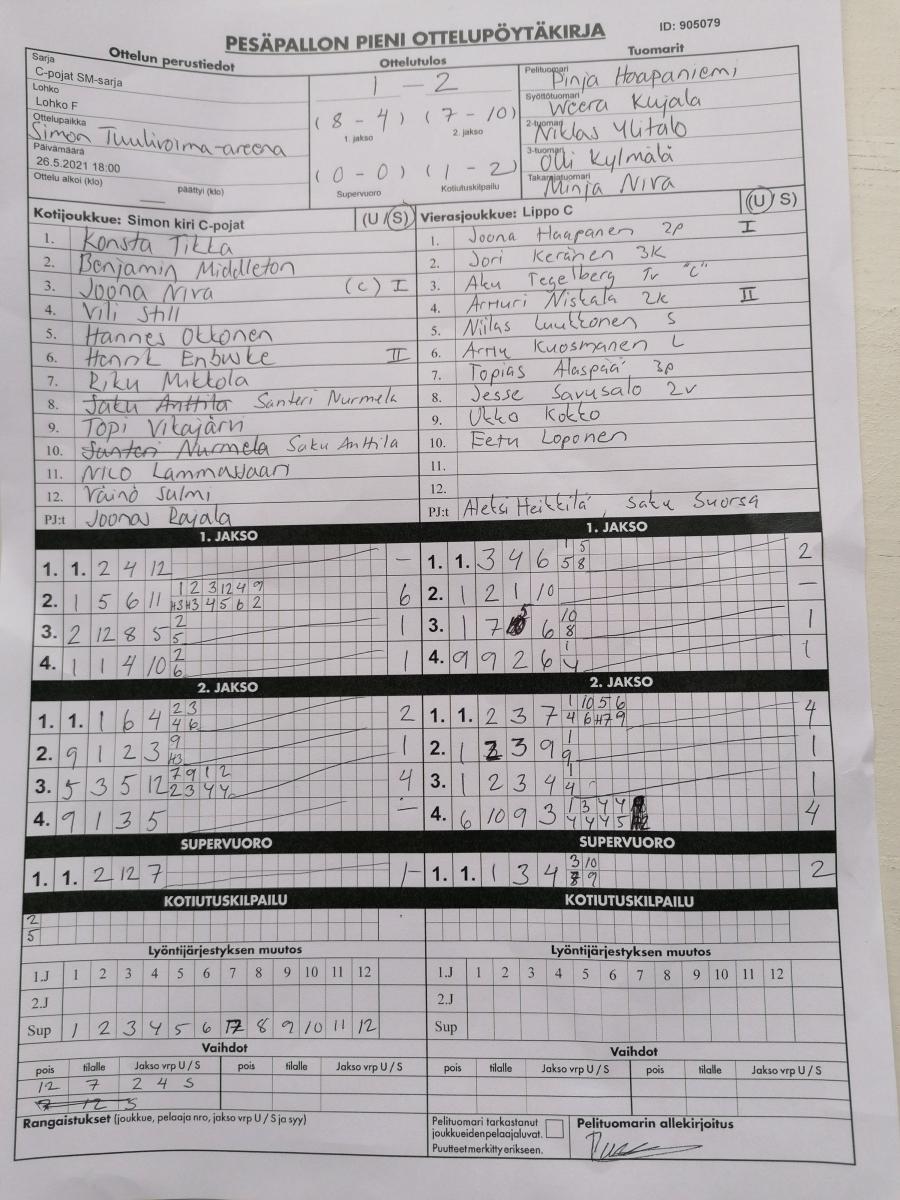 PESÄPALLON PIENI OTTELUPÖYTÄKIRJA ID: 905079
Ottelun perustiedot Ottelutulos Tuomarit
Sarja
C-pojat SM-sarja
Lohko
Lohko F
Ottelupaikka
Simon Tuulivoima-areena
Päivämäärä
26.5.2021 18:00
Ottelu alkoi (klo) päättyi (klo)
1 - 2
(8 - 4) (7 - 10)
1. jakso 2. jakso
(0 - 0) (1 - 2)
Supervuoro Kotiutuskilpailu
Pelituomari Pinja Haapaniemi
Syöttötuomari Weera Kujala
2-tuomari Niklas Ylitalo
3-tuomari Olli Kylmälä
Takarajatuomari Minja Niva
Kotijoukkue: Simon kiri C-pojat (U / S)
1. Konsta Tikka
2. Benjamin Middleton
3. Joona Niva (c) I
4. Vili Still
5. Hannes Okkonen
6. Henrik Enbuske II
7. Riku Mikkola
8. Saku Anttila Santeri Nurmela
9. Topi Vikajärvi
10. Santeri Nurmela Saku Anttila
11. Nico Lammassaari
12. Väinö Salmi
PJ:t Joonas Rajala
Vierasjoukkue: Lippo C (U / S)
1. Joona Haapanen 2p I
2. Jori Keränen 3K
3. Aku Tegelberg Tv "C"
4. Artturi Niskala 2k II
5. Niilas Luukkonen S
6. Arttu Kuosmanen L
7. Topias Alaspää 3p
8. Jesse Savusalo 2v
9. Ukko Kokko
10. Eetu Loponen
11.
12.
PJ:t Aleksi Heikkilä, Saku Suorsa
1. JAKSO
1. 1. 2 4 12 -
2. 1 5 6 11 1 2 3 12 4 9 6
H3 H3 4 5 6 2
3. 2 12 8 5 2 1
5
4. 1 1 4 10 2 1
6
1. JAKSO
1. 1. 3 4 6 1 5 2
5 8
2. 1 2 1 10 -
3. 1 7 5 6 10 1
8
4. 9 9 2 6 1 1
4
2. JAKSO
1. 1. 1 6 4 2 3 2
4 6
2. 9 1 2 3 9 1
H3
3. 5 3 5 12 7 9 1 2 4
2 3 4 4
4. 9 1 3 5 -
2. JAKSO
1. 1. 2 3 7 1 10 5 6 4
4 6 H7 9
2. 1 2 3 9 1 1
9
3. 1 2 3 4 1 1
4
4. 6 10 9 3 1 3 4 4 4
4 4 4 5
SUPERVUORO
1. 1. 2 12 7 -
SUPERVUORO
1. 1. 1 3 4 3 10 2
8 9
KOTIUTUSKILPAILU
2
5
Lyöntijärjestyksen muutos
1.J 1 2 3 4 5 6 7 8 9 10 11 12
2.J
Sup 1 2 3 4 5 6 7 8 9 10 11 12
Vaihdot
pois tilalle Jakso vrp U / S pois tilalle Jakso vrp U / S
12 7 2 4 S
7 12 S
KOTIUTUSKILPAILU
Lyöntijärjestyksen muutos
1.J 1 2 3 4 5 6 7 8 9 10 11 12
2.J
Sup
Vaihdot
pois tilalle Jakso vrp U / S pois tilalle Jakso vrp U / S
Rangaistukset (joukkue, pelaaja nro, jakso vrp U / S ja syy)
Pelituomari tarkastanut
joukkueidenpelaajaluvat.
Puutteet merkitty erikseen.
Pelituomarin allekirjoitus